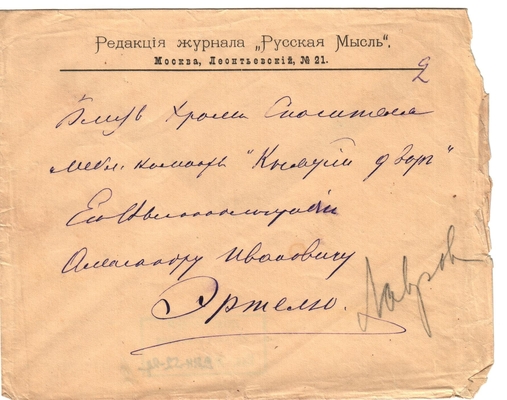 Редакція журнала „Русская Мысль“.
Москва, Леонтьевскій, № 21.
2
Близ Храма Спасителя
мебл. комнаты "Княжій дворъ"
Александру Ивановичу
Эртелю.
Лавров